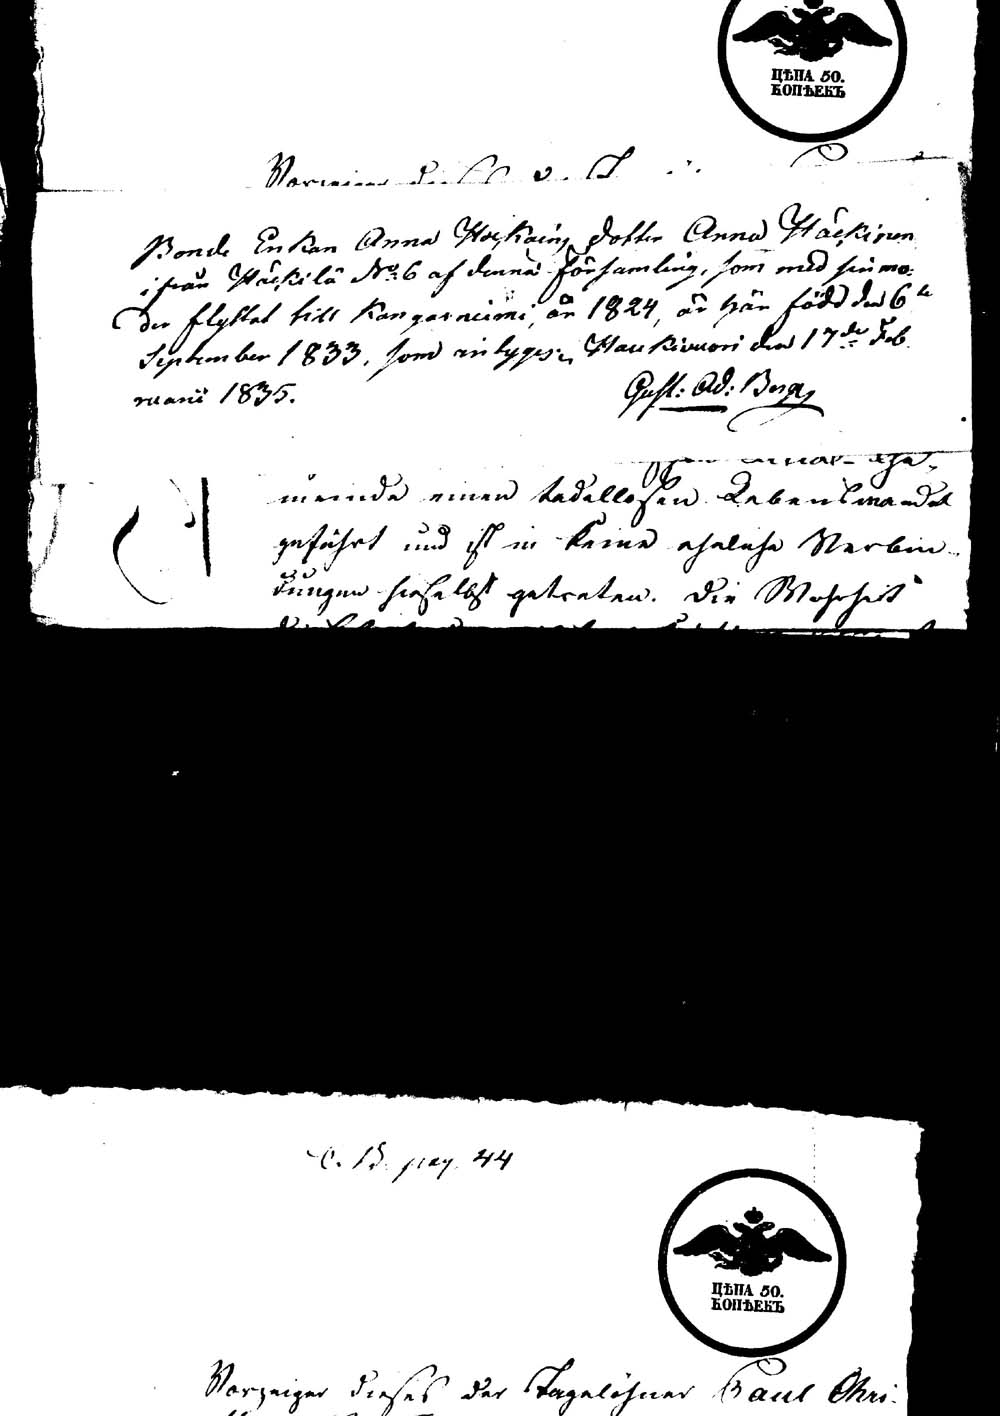 ЦѢНА 50.
КОПѢЕКЪ
Vorzeiger
Bonde Enkan Anna dotter Anna Häckinen
ifrån Häckilä No 6 af denna församling, som med sin mo-
der flyttat till Kangasniemi, år 1824, är här född den 6te
September 1833, som intygas; Haukivuori den 17de Feb-
ruarii 1835.
Gust: Ad: Berg
meinde einen tadellosen Lebenswandel
geführt und ist in keine eheliche Verbin-
dungen hieselbst getreten. Die Wahrheit
C. B. pag. 44
ЦѢНА 50.
КОПѢЕКЪ
Vorzeiger dieses der Tagelöhner Paul Chri-